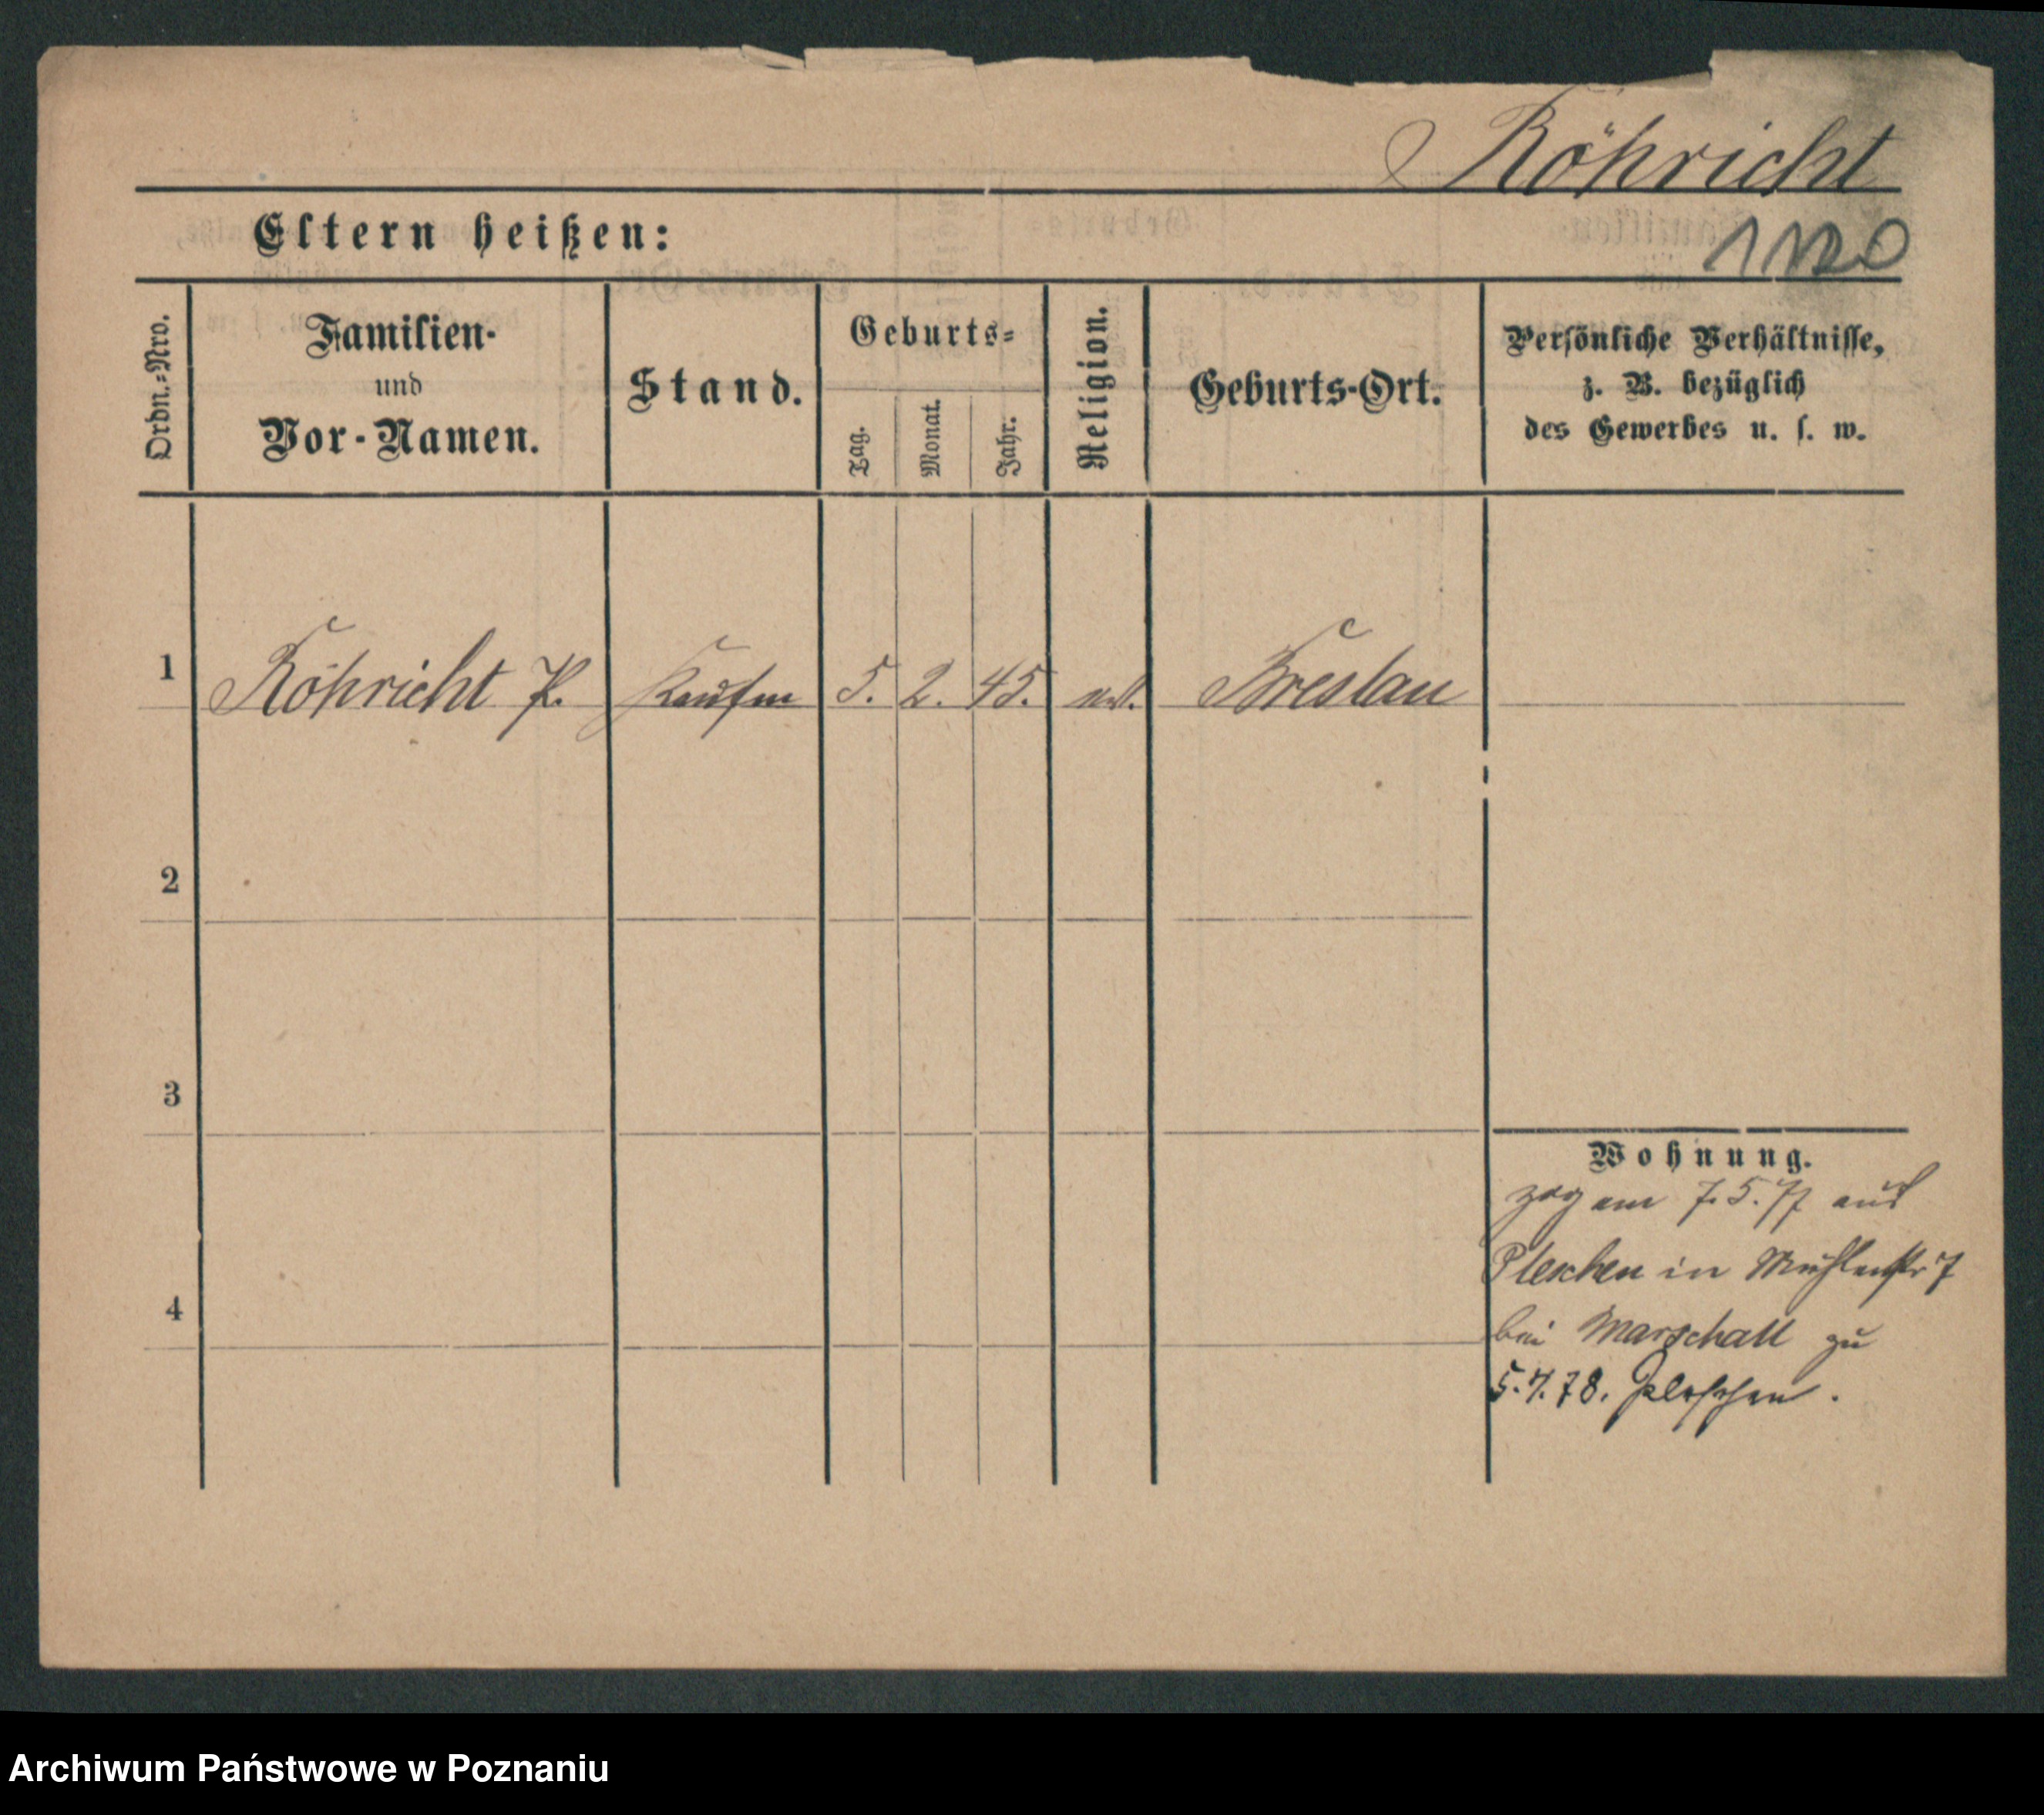 Röhricht
Eltern heißen:
Ordn.-Nro.
Familien-
und
Vor-Namen.
Stand.
Geburts-
Tag.
Monat.
Jahr.
Religion.
Geburts-Ort.
Persönliche Verhältnisse,
z. B. bezüglich
des Gewerbes u. s. w.
1 Röhricht P. Kaufm 5. 2. 45. Breslau
2
3
4
Wohnung.
zog am 7.5.77 aus
Pleschen in Mühlenstr 7
bei Marschall zu
5.7.78. Pleschen.
Archiwum Państwowe w Poznaniu